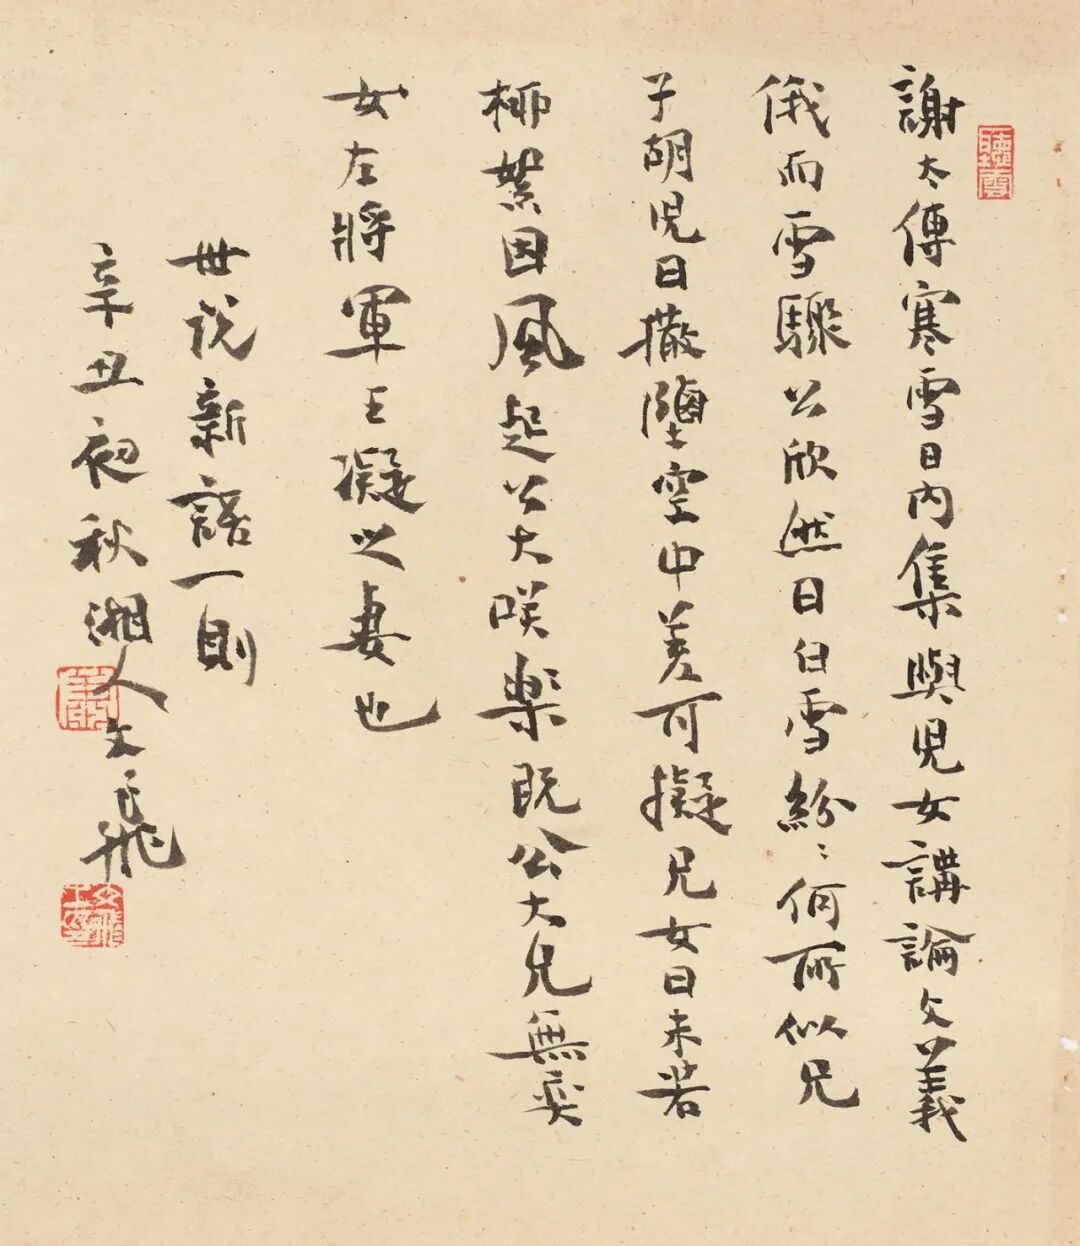 謝太傅寒雪日内集與兒女講論文義
俄而雪驟公欣然曰白雪紛〻何所似兄
子胡兒曰撒鹽空中差可擬兄女曰未若
柳絮因風起公大咲楽既公大兄無奕
女左將軍王凝之妻也
世說新語一則
辛丑初秋湘人文飛